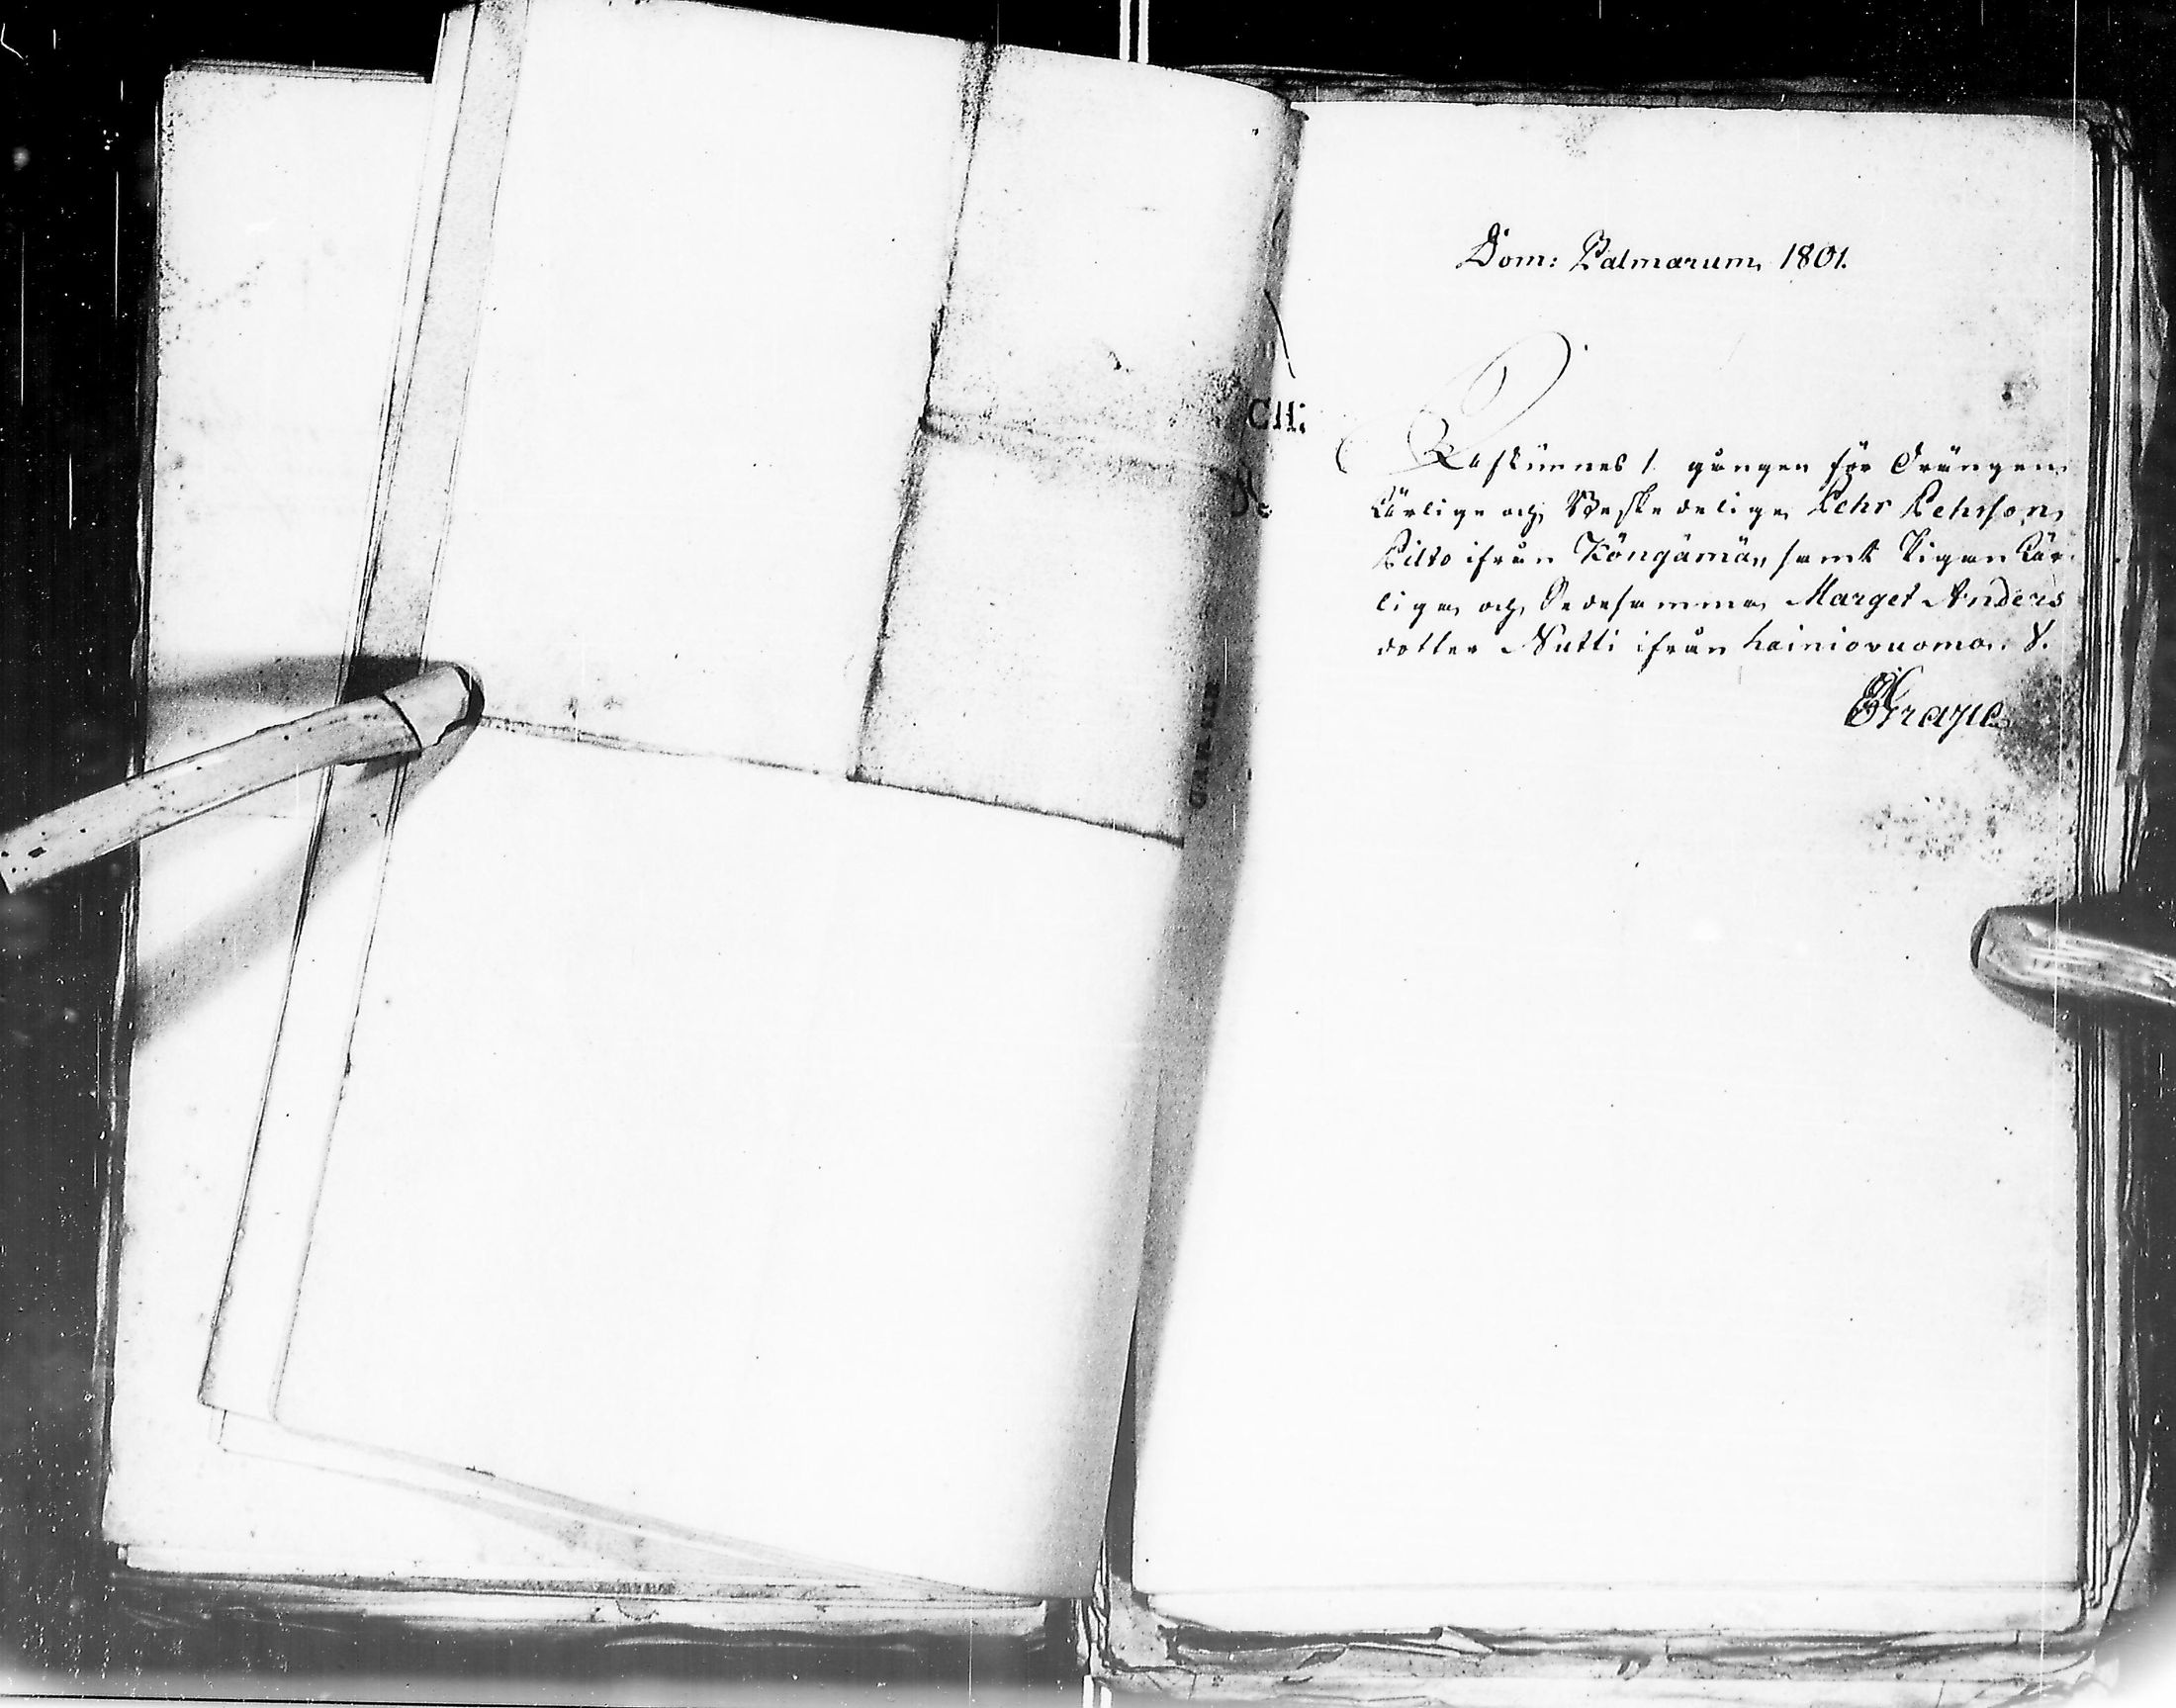 Dom: Palmarum 1801.
Afkünnes 1 gången för Drängen
Ärlige och Beskedelige Pehr Pehrson
Pilto ifrån Köngämä, samt Pigan Är-
liga och Dedesamma Marget Anders
dotter Nutti ifrån Lainiovuoma.
Grape